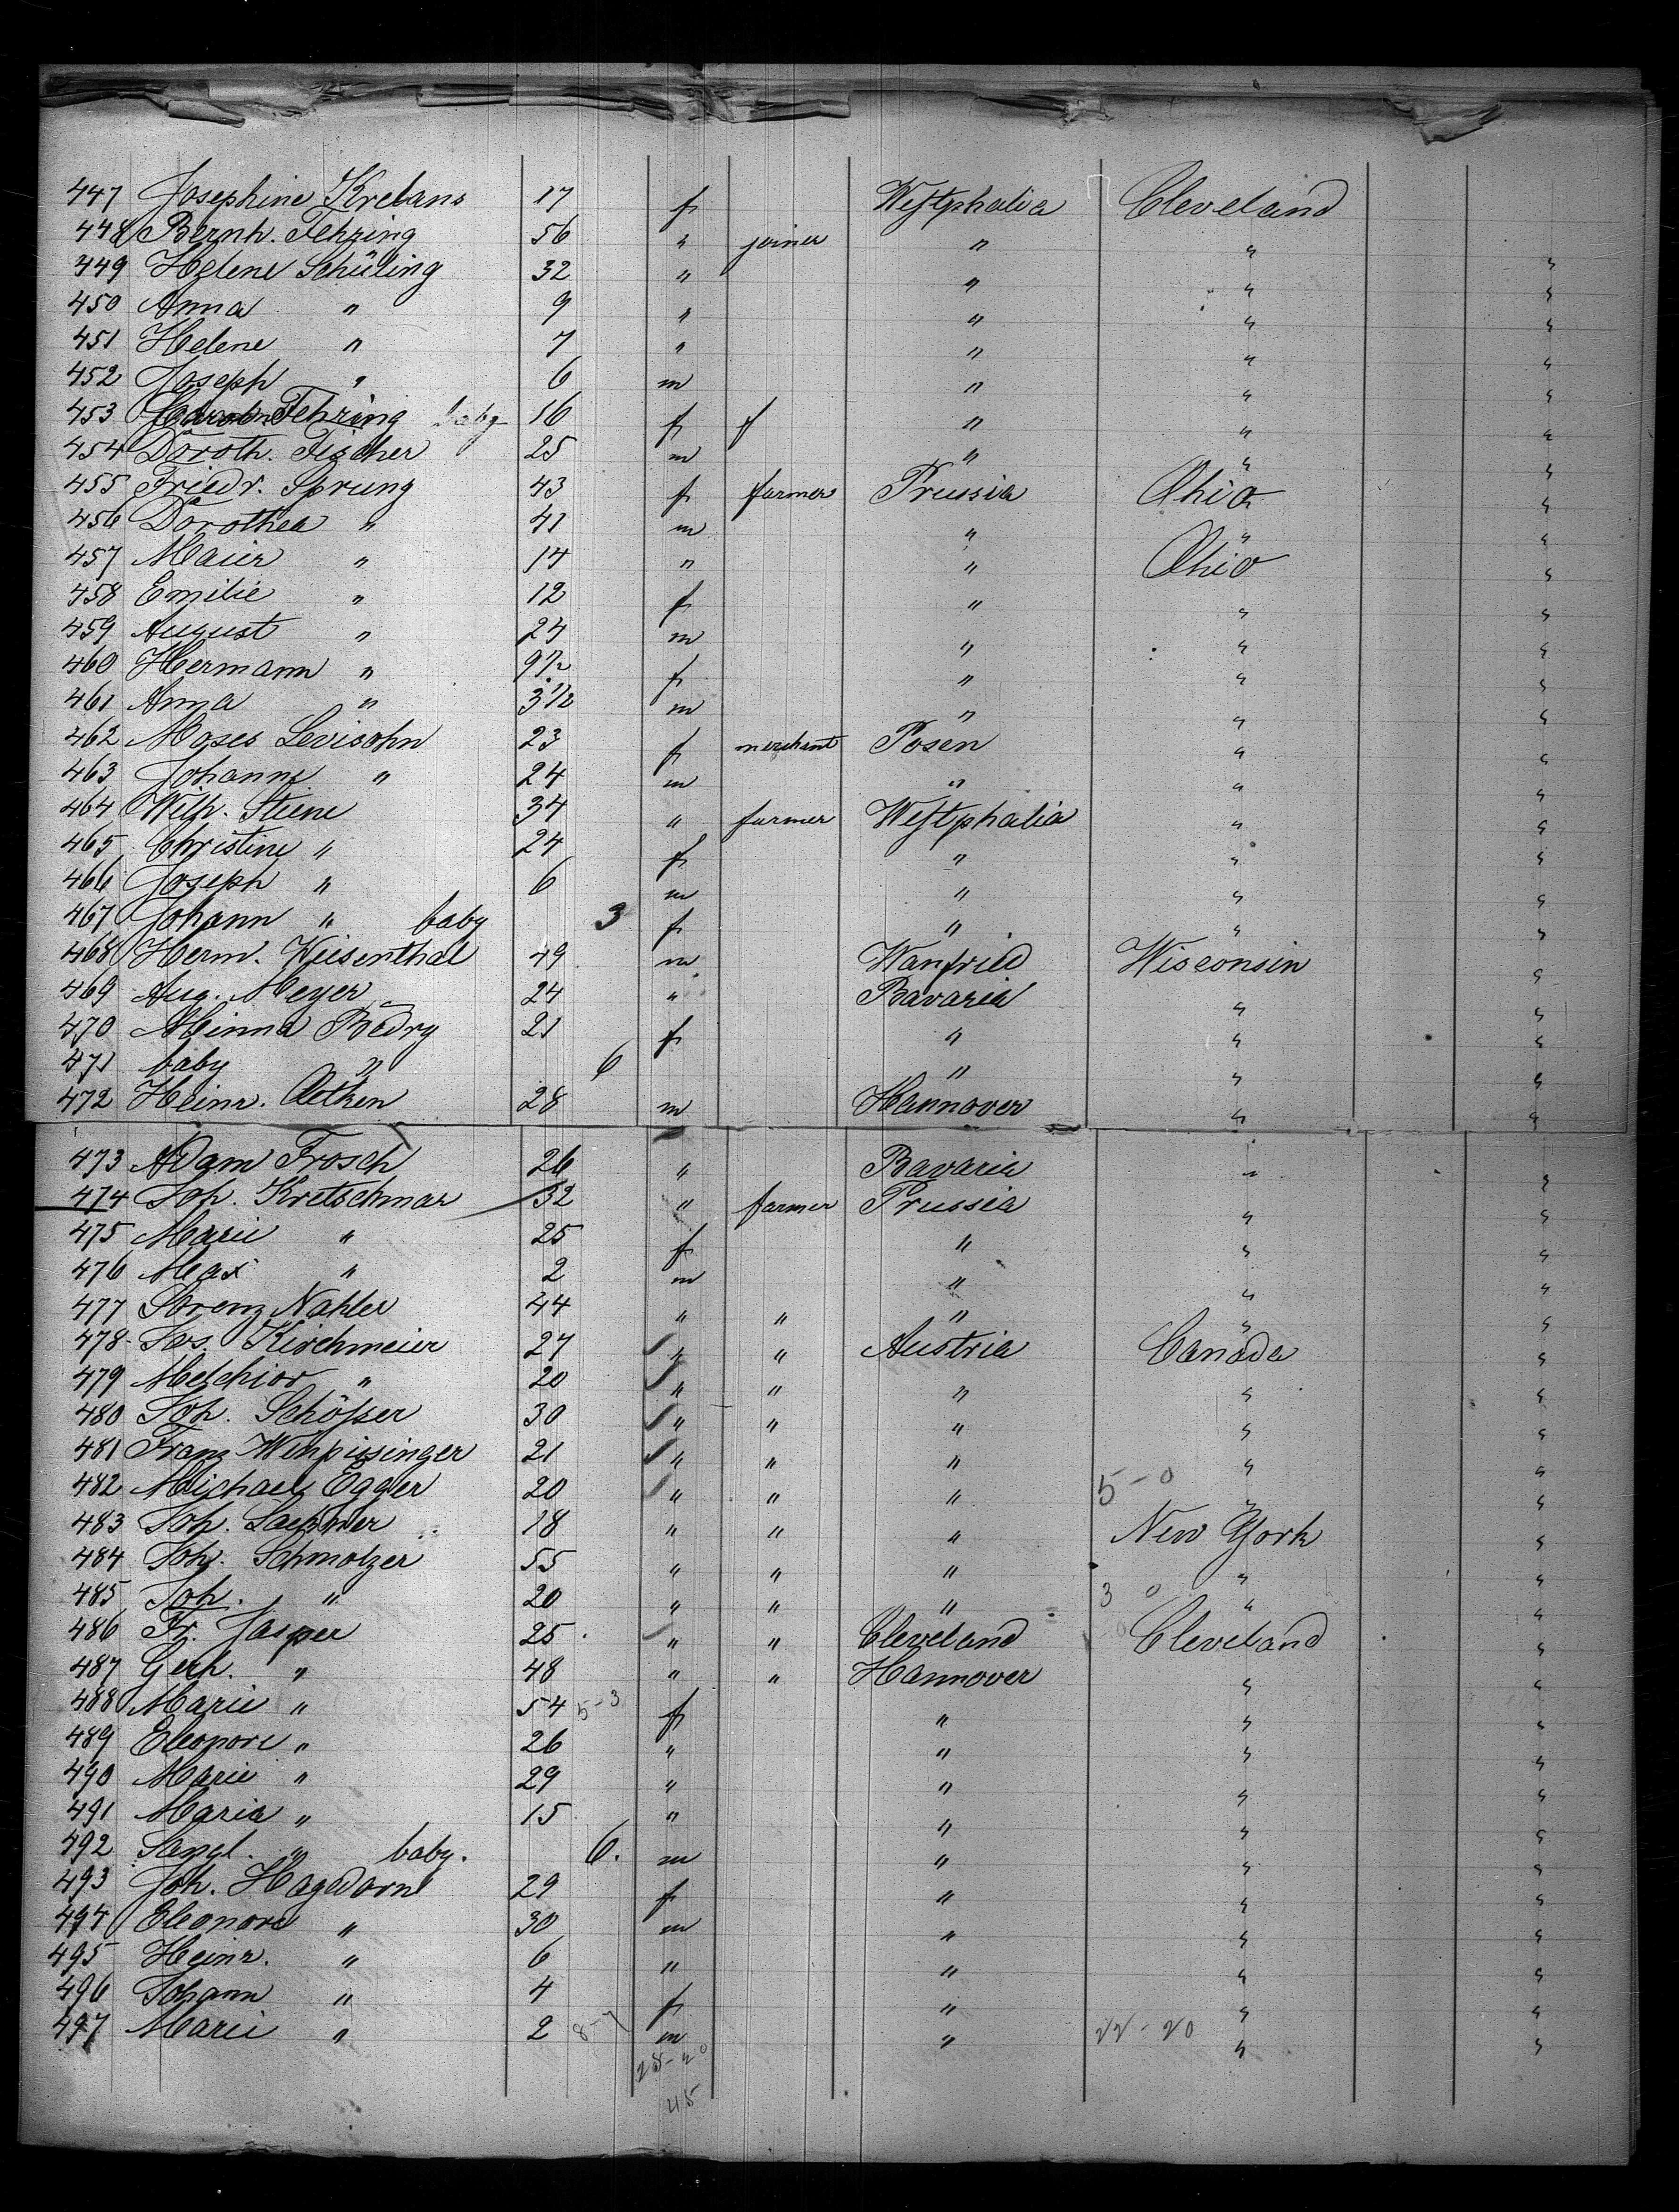 447 Josephine Krebans 17 f Westphalia Cleveland
448 Bernh. Fehring 56 " joiner " "
449 Helene Schüling 32 " " " "
450 Anna " 9 " " " "
451 Helene " 7 " " " "
452 Joseph " 6 m " " "
453 Fehring baby 16 f f " " "
454 Doroth. Fischer 25 m " " "
455 Friedr. Sprung 43 f farmer Prussia Ohio "
456 Dorothea " 41 m " " "
457 Maier " 14 " " Ohio "
458 Emilie " 12 f " " "
459 August " 24 m " " "
460 Hermann " 9 1/2 f " " "
461 Anna " 3 1/2 m " " "
462 Moses Levisohn 23 f merchant Posen " "
463 Johanne " 24 m " " "
464 Wilh. Stiene 34 " farmer Westphalia " "
465 Christine " 24 f " " "
466 Joseph " 6 m " " "
467 Johann " baby 3 f " " "
468 Herm. Wiesenthal 49 m Wanfried Wisconsin "
469 Aug. Meyer 24 " Bavaria " "
470 Minna Bedry 21 f " " "
471 baby " 6 " " "
472 Heinr. Oetken 28 m Hannover " "
473 Adam Frosch 26 " Bavaria " "
474 Joh. Kretschmar 32 " farmer Prussia " "
475 Marie " 25 f " " "
476 Max " 2 m " " "
477 Lorenz Nahler 44 " " " " "
478 Jos. Kirchmeier 27 " " Austria Canada "
479 Melchior " 20 " " " " "
480 Joh. Schösser 30 " " " " "
481 Franz Winpissinger 21 " " " " "
482 Michael Egger 20 " " " 5-0 " "
483 Joh. 18 " " " New York "
484 Joh. Schmolzer 55 " " " " "
485 Joh. " 20 " " " 3 0 " "
486 Fr. Jasper 25 " " Cleveland Cleveland "
487 Gerh. " 48 " " Hannover " "
488 Marie " 54 5-3 f " " "
489 Eleonore " 26 " " " "
490 Marie " 29 " " " "
491 Maria " 15 " " " "
492 Sangl. " baby. 6. m " " "
493 Joh. Hagedorn 29 f " " "
494 Eleonore " 30 m " " "
495 Heinr. " 6 " " " "
496 Johann " 4 f " " "
497 Marie " 2 8-7 m " 22-20 " "
25-20
45